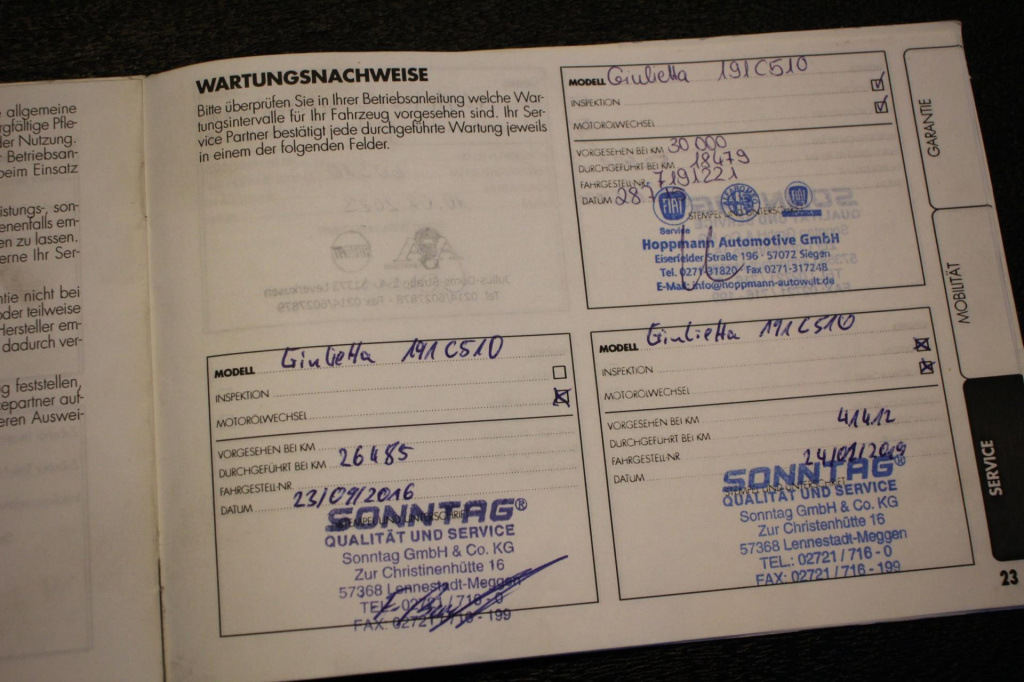 allgemeine
rgfältige Pfle-
der Nutzung.
Betriebsan-
beim Einsatz
istungs-, son-
enenfalls em-
en zu lassen.
erne Ihr Ser-
ntie nicht bei
oder teilweise
Hersteller em-
dadurch ver-
g feststellen,
cepartner auf-
eren Auswei-
WARTUNGSNACHWEISE
Bitte überprüfen Sie in Ihrer Betriebsanleitung welche War-
tungsintervalle für Ihr Fahrzeug vorgesehen sind. Ihr Ser-
vice Partner bestätigt jede durchgeführte Wartung jeweils
in einem der folgenden Felder.
MODELL Giulietta 191C510
INSPEKTION
MOTORÖLWECHSEL
VORGESEHEN BEI KM 30 000
DURCHGEFÜHRT BEI KM 18479
FAHRGESTELL-NR. 7191221
DATUM 28.
FIAT
STEMPEL UND UNTERSCHRIFT
Service
Hoppmann Automotive GmbH
Eiserfelder Straße 196 · 57072 Siegen
Tel. 0271-31820 · Fax 0271-317248
E-Mail: info@hoppmann-autowelt.de
MODELL Giulietta 191C510
INSPEKTION
MOTORÖLWECHSEL
VORGESEHEN BEI KM
DURCHGEFÜHRT BEI KM 26485
FAHRGESTELL-NR.
DATUM 23/09/2016
STEMPEL UND UNTERSCHRIFT
SONNTAG®
QUALITÄT UND SERVICE
Sonntag GmbH & Co. KG
Zur Christinenhütte 16
57368 Lennestadt-Meggen
TEL.: 02721 / 716 - 0
FAX: 02721 / 716 - 199
MODELL Giulietta 191C510
INSPEKTION
MOTORÖLWECHSEL
VORGESEHEN BEI KM
DURCHGEFÜHRT BEI KM 41412
FAHRGESTELL-NR.
DATUM
STEMPEL UND UNTERSCHRIFT
SONNTAG®
QUALITÄT UND SERVICE
Sonntag GmbH & Co. KG
Zur Christenhütte 16
57368 Lennestadt-Meggen
TEL.: 02721 / 716 - 0
FAX: 02721 / 716 - 199
GARANTIE
MOBILITÄT
SERVICE
23